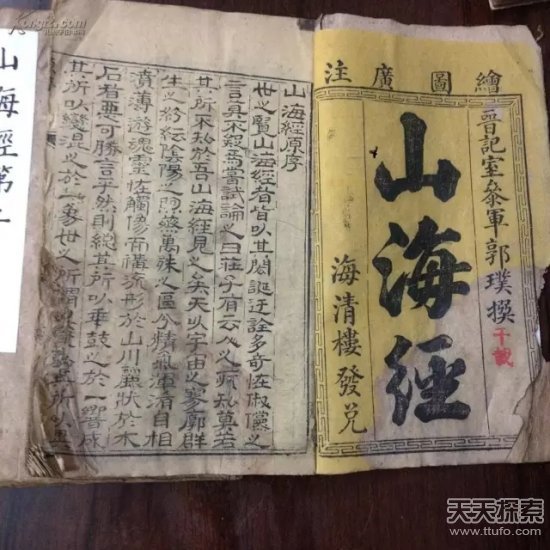 繪圖廣注
晉記室參軍郭璞撰
千載
山海經
海清樓發兌
山海經原序
世之覽山海經者皆以其閎誕迂誇多奇怪俶儻之
言莫不疑焉嘗試論之曰莊子有云人之所知莫若
其所不知於吾山海經見之矣夫以宇宙之寥廓群
生之紛紜陰陽之煦蒸萬殊之區分精氣渾淆自相
濆薄遊魂靈怪觸像而構流形於山川麗狀於木
石者惡可勝言乎然則總其所以乖鼓之於一響成
其所以變混之於一象世之所謂異
山海經第
天天探索
www.ttufo.com